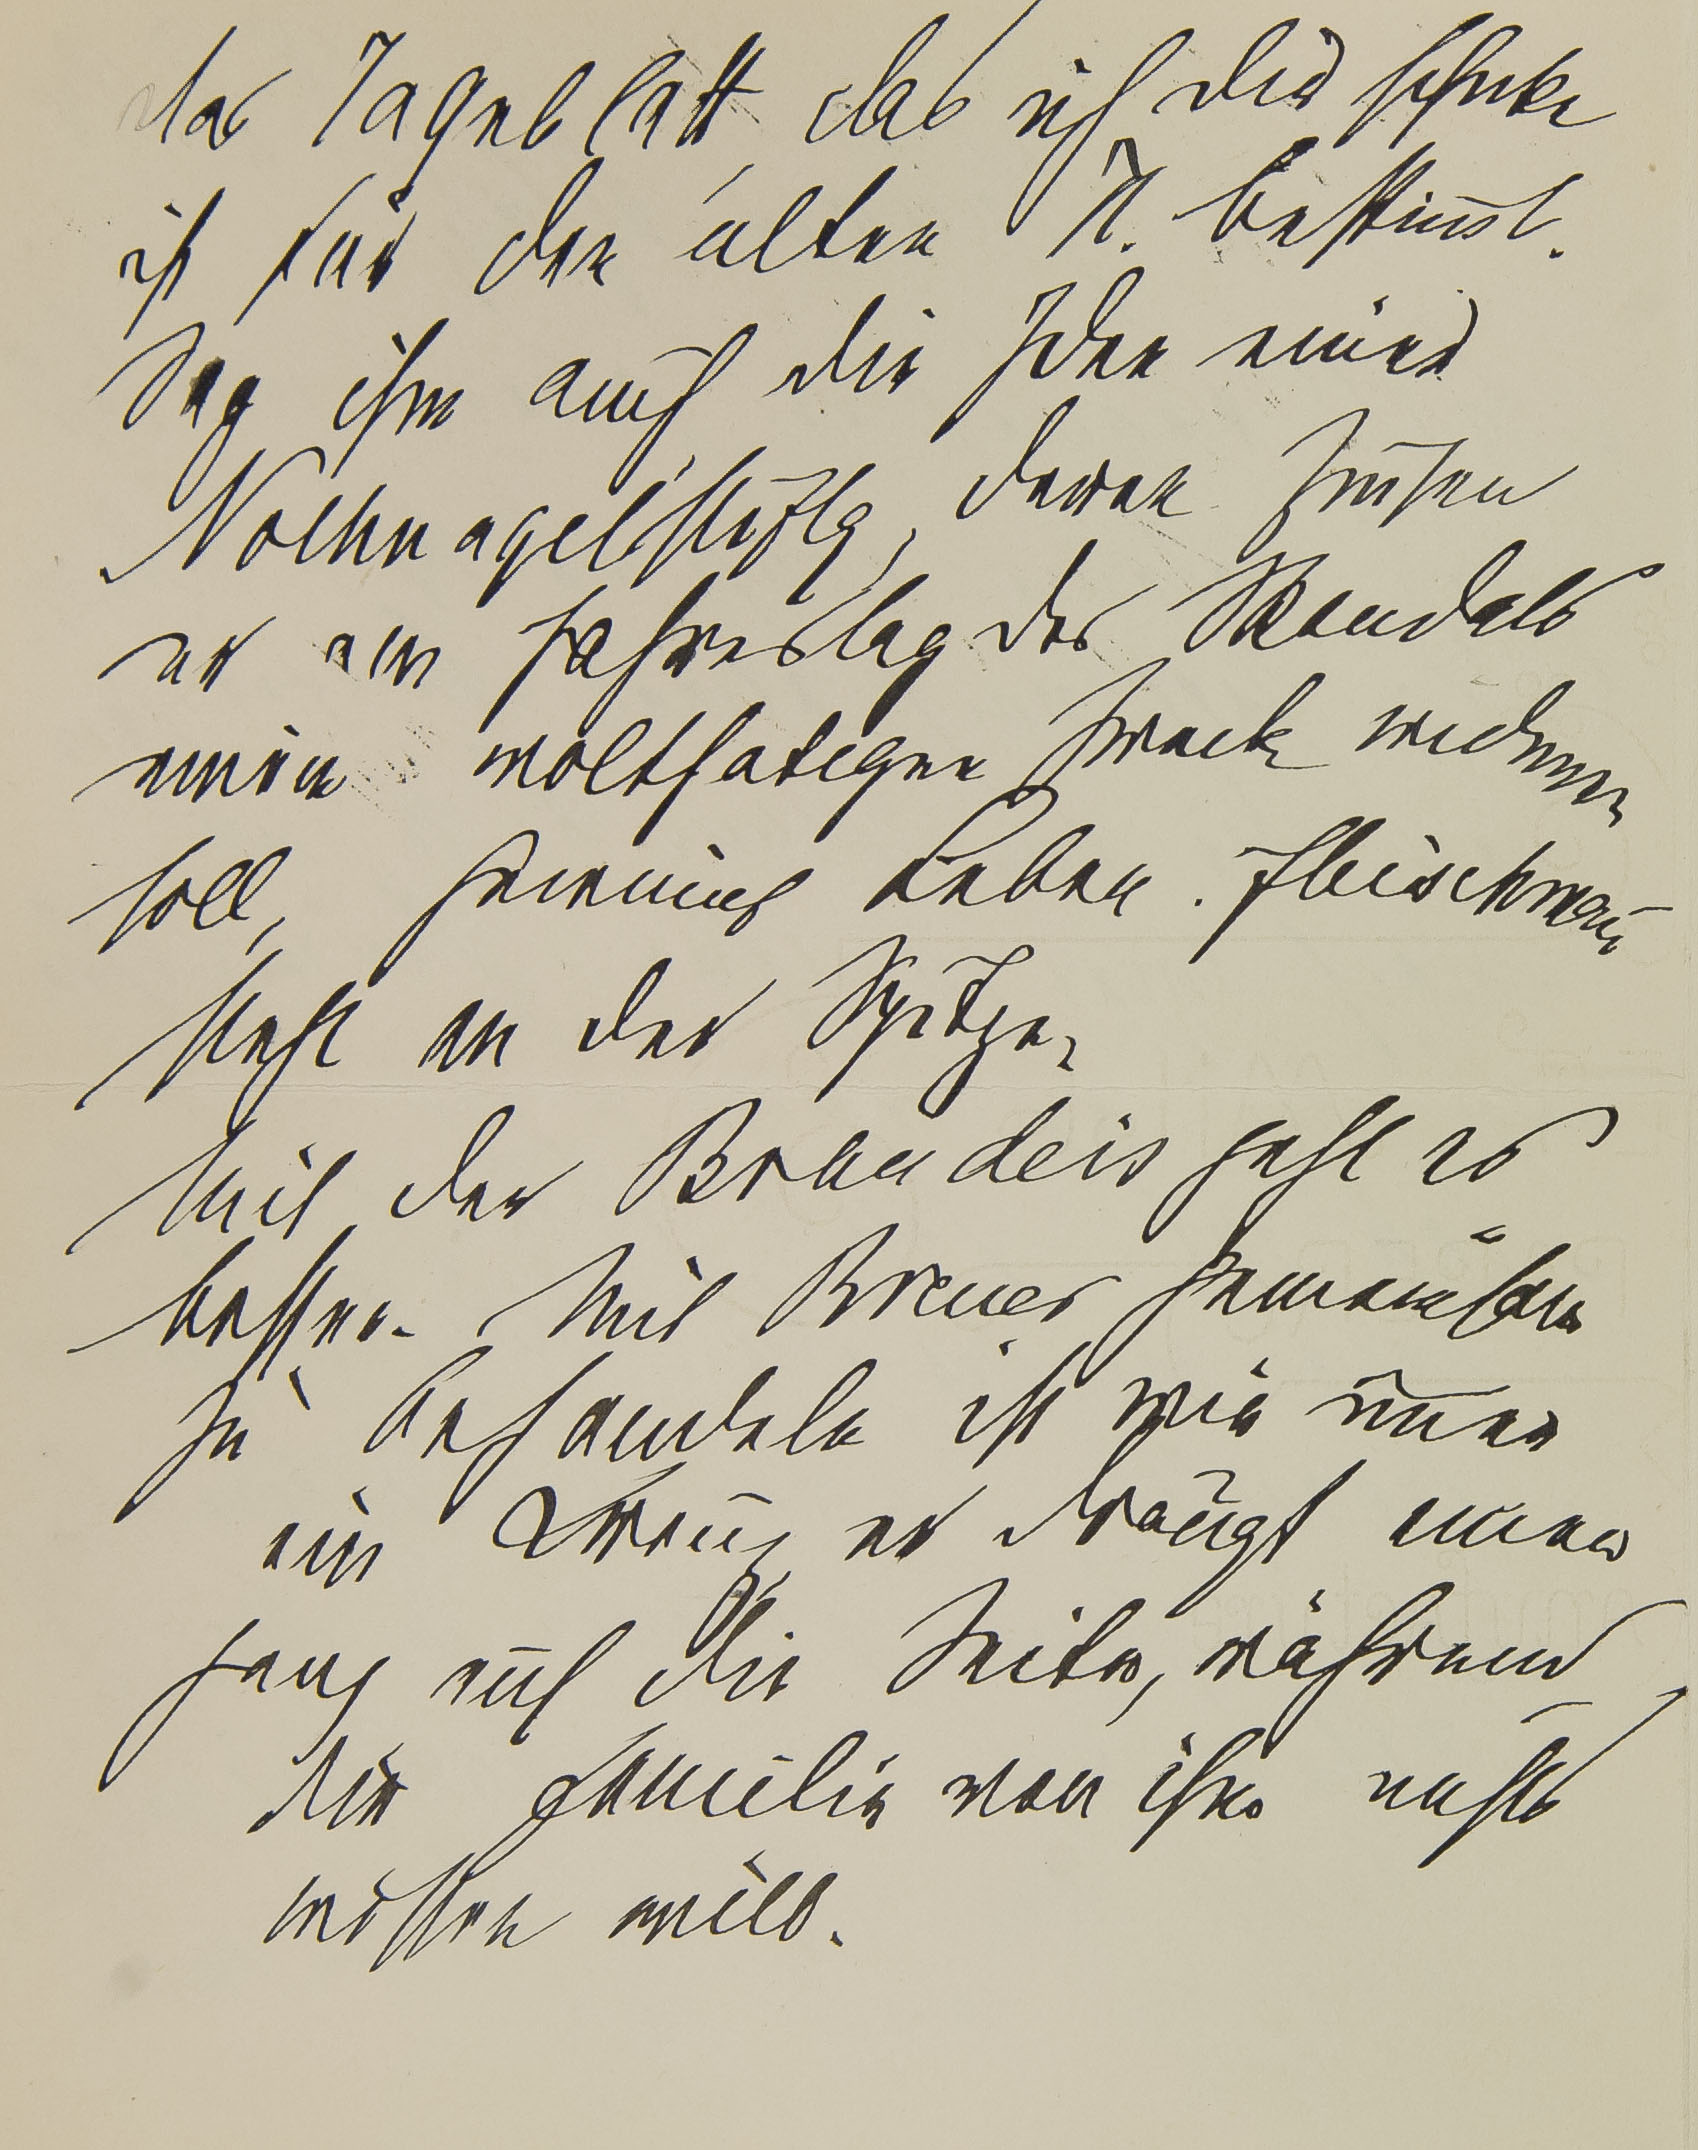 das Tageblatt, das ich Dir schicke
ist für den alten N. bestimt.
Sag ihm auch die Idee einer
Nothnagelstiftg, deren Zinsen
er am Jahrestag des Skandals
einem wolthätigen Zweck widmen
soll, hereinies Leben. Fleischman
steht an der Spitze.
Mit der Brandeis geht es
besser. Mit Breuer gemeinsam
zu behandeln ist wie imer
ein Kreuz, er drängt einen
ganz auf die Seite, während
die Familie von ihm nichts
wissen will.